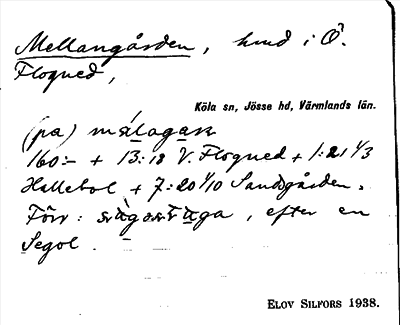 Mellangården, hmd i Ö.
Flogned,
Köla sn, Jösse hd, Värmlands län.
(pa) målagan
160:- + 13:18 V. Flogned + 1:21 1/3
Hillebol + 7:20 1/10 Sandsgården.
Förr: , efter en
Segol.
ELOV SILFORS 1938.